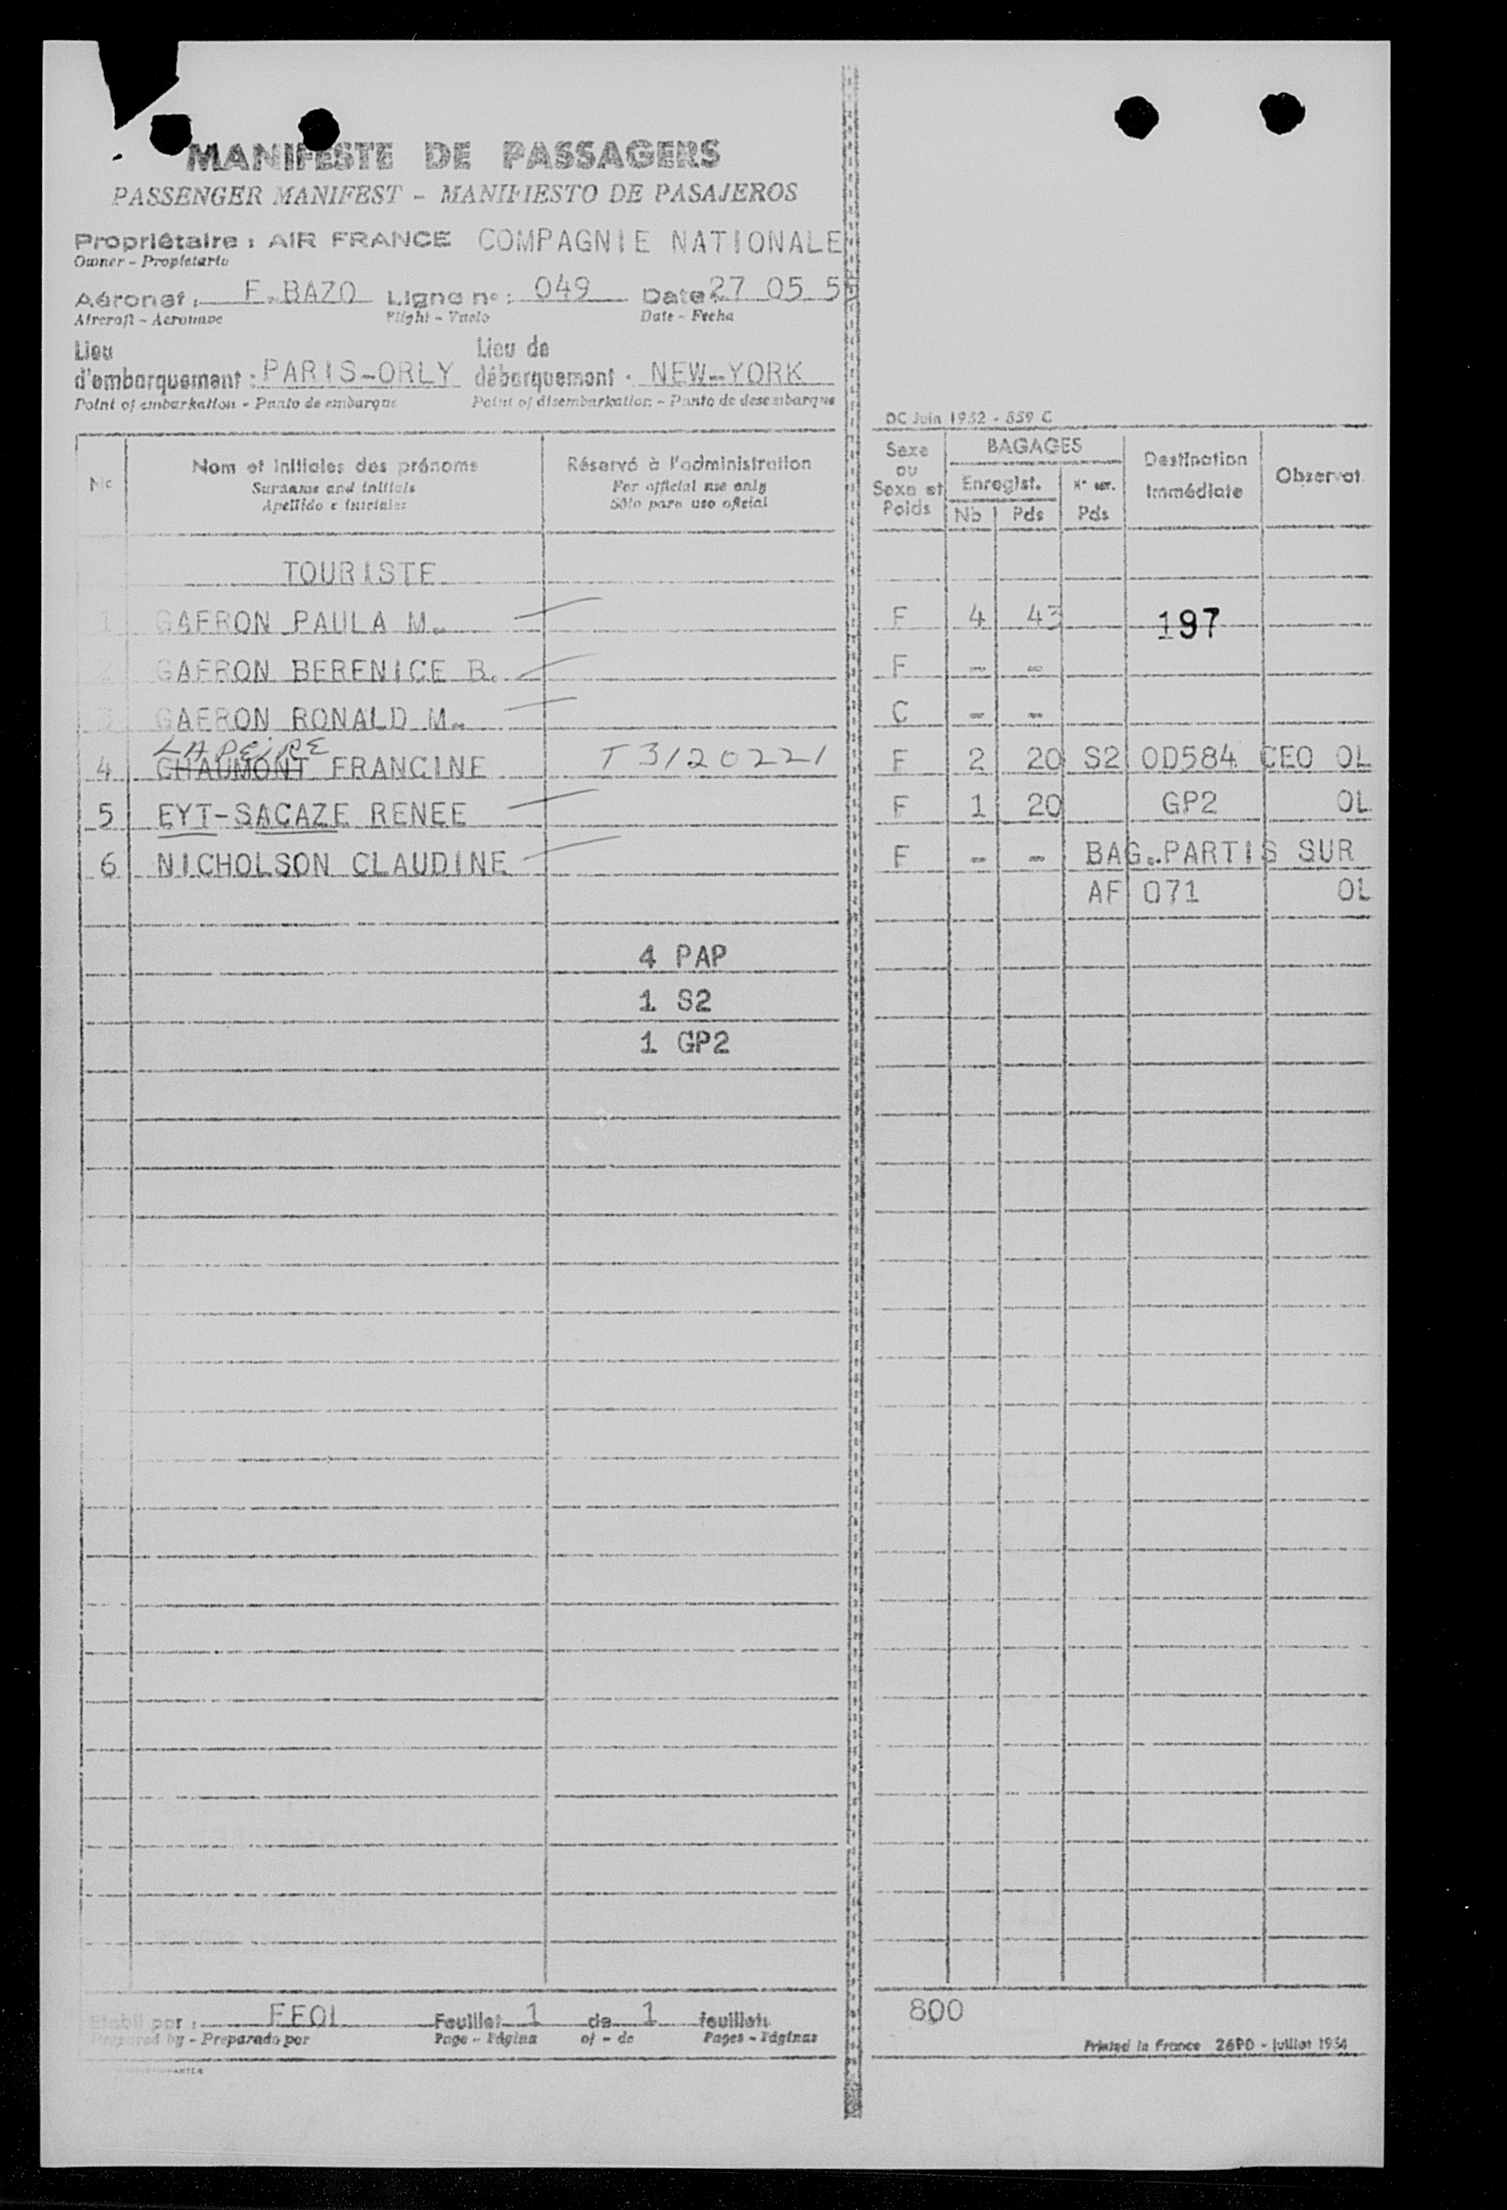 MANIFESTE DE PASSAGERS
PASSENGER MANIFEST - MANIFIESTO DE PASAJEROS
Propriétaire : AIR FRANCE COMPAGNIE NATIONALE
Owner - Propietario
Aéronef : F.BAZO Ligne n° : 049 Date 27 05 5
Aircraft - Aeronave Flight - Vuelo Date - Fecha
Lieu d'embarquement : PARIS-ORLY Lieu de débarquement : NEW-YORK
Point of embarkation - Punto de embarque Point of disembarkation - Punto de desembarque
DC Juin 1952 - 859 C
No Nom et initiales des prénoms Réservé à l'administration Sexe ou Sexe et Poids BAGAGES Destination immédiate Observat.
Surname and initials For official use only Enregist. N° enr.
Apellido e iniciales Sólo para uso oficial Nb Pds Pds
TOURISTE
1 GAFRON PAULA M. F 4 43 197
2 GAFRON BERENICE B. F - -
3 GAFRON RONALD M. C - -
LAPEIRE
4 CHAUMONT FRANCINE T 3120221 F 2 20 S2 OD584 CEO OL
5 EYT-SACAZE RENEE F 1 20 GP2 OL
6 NICHOLSON CLAUDINE F - - BAG.PARTIS SUR
AF 071 OL
4 PAP
1 S2
1 GP2
Etabli par : Feuillet 1 de 1 feuillets 800
Prepared by - Preparado por Page - Página of - de Pages - Páginas
Printed in France 26PD - Juillet 1954